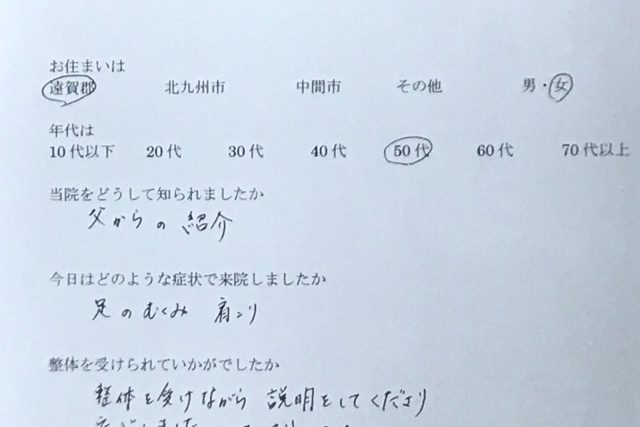 お住まいは
遠賀郡 北九州市 中間市 その他 男・女
年代は
10代以下 20代 30代 40代 50代 60代 70代以上
当院をどうして知られましたか
父からの 紹介
今日はどのような症状で来院しましたか
足のむくみ 肩こり
整体を受けられていかがでしたか
整体を受けながら 説明をしてくださり